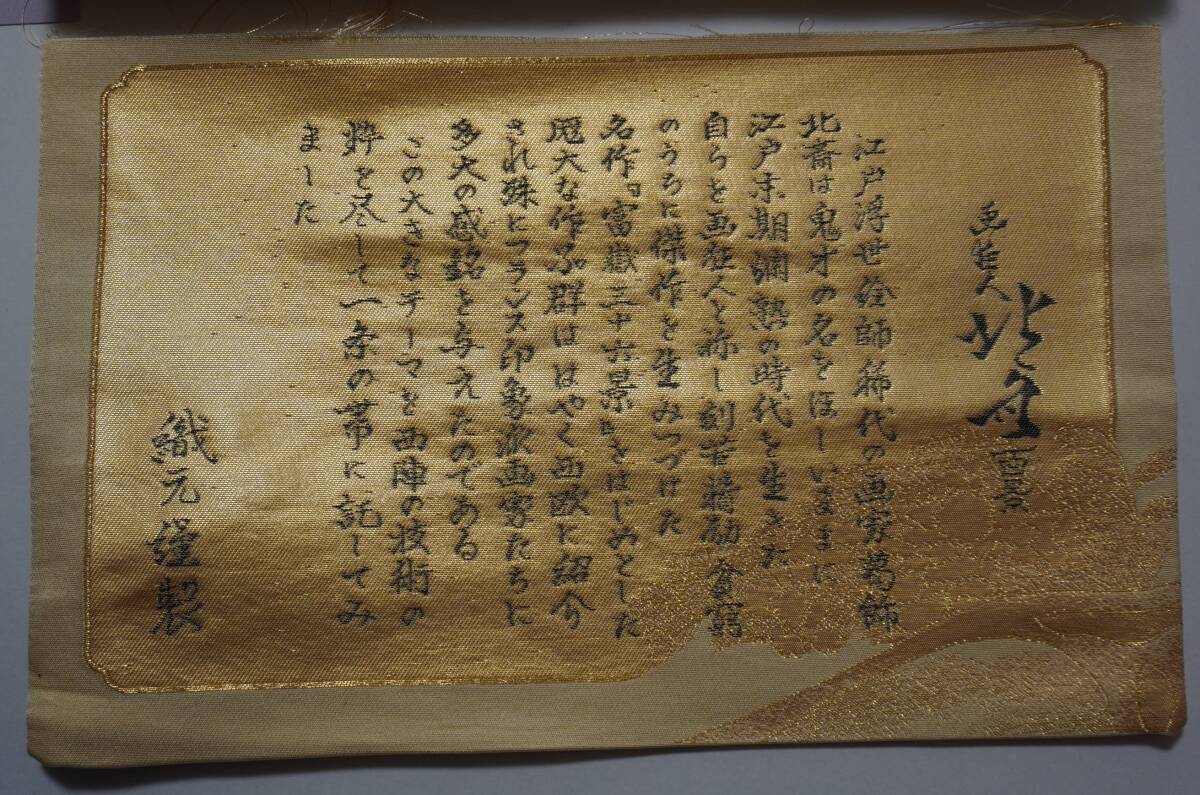 画狂人 北斎 画
江戸浮世絵師稀代の画家葛飾
北斎は鬼才の名をほしいままに
江戸末期爛熟の時代を生きた
自らを画狂人と称し刻苦精励 貧窮
のうちに傑作を生みつづけた
名作『富嶽三十六景』をはじめとした
尨大な作品群ははやく西欧に紹介
され殊にフランス印象派画家たちに
多大の感銘を与えたのである
この大きなテーマを西陣の技術の
粋を尽して一条の帯に託してみ
ました
織元謹製